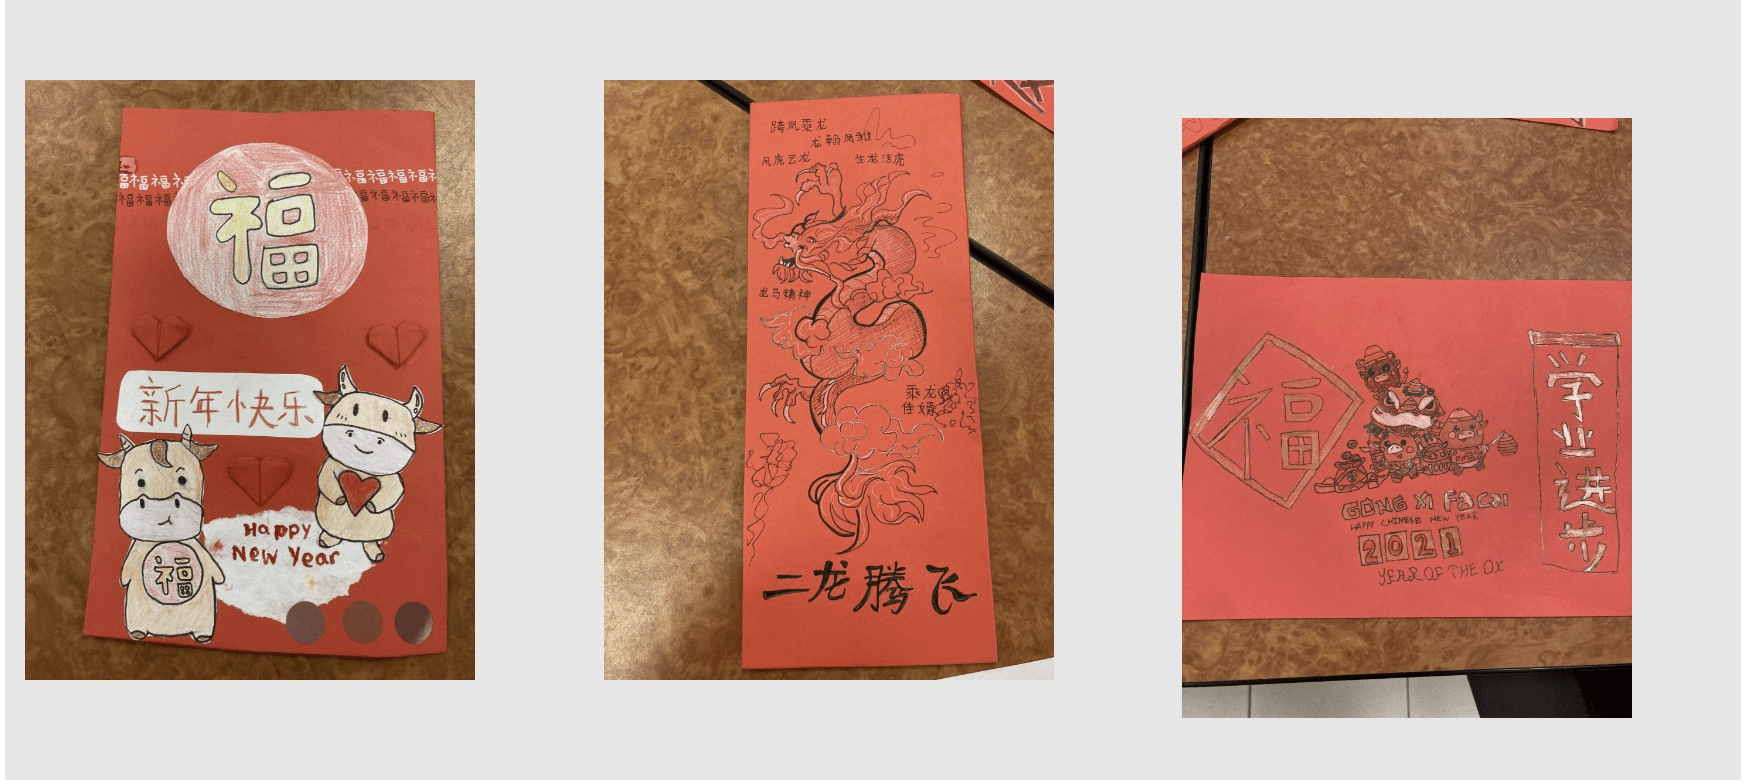 福福福福
福福福福福
福福福
福福福福
福
新年快乐
Happy
New Year
福
跨凤乘龙
龙翰凤雏
风虎云龙
生龙活虎
龙马精神
乘龙
佳婿
二龙腾飞
福
GONG XI Fa Cai
HAPPY CHINESE NEW YEAR
2021
YEAR OF THE OX
学业进步